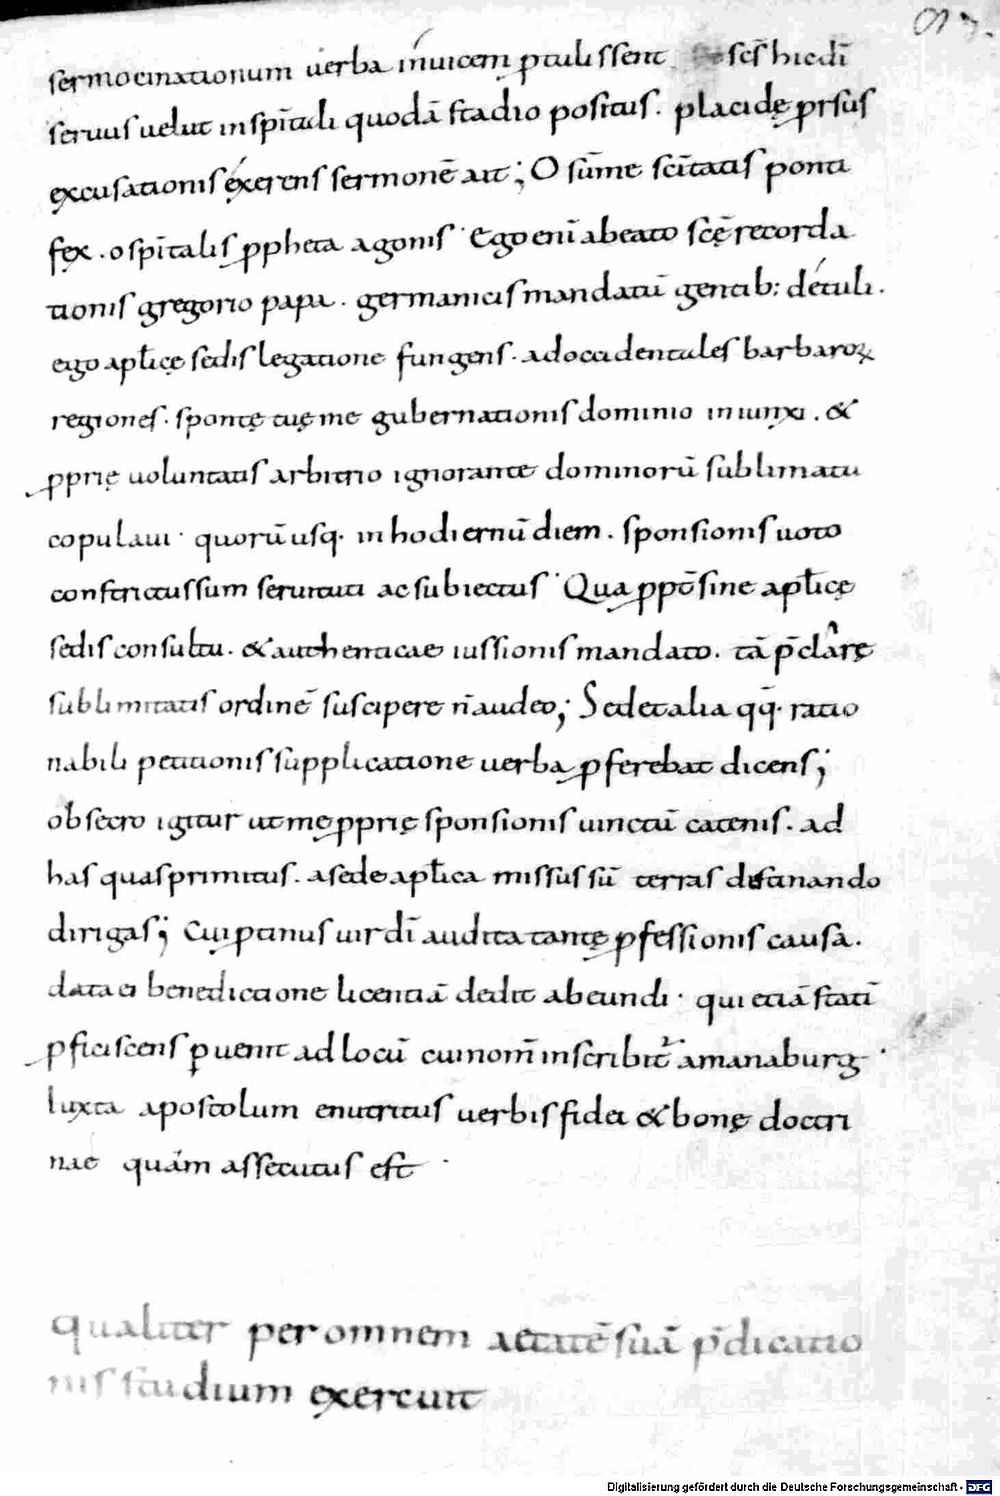 sermocinationum uerba inuicem ꝓtulissent scs̄ hic dī
seruus uelut in spīitali quodā stadio positus. placidę ꝓrsus
excusationis exerens sermonē ait; O sūme scītatis ponti
fex. o spīitalis ꝓpheta agonis· Ego enī a beato scę̄ recorda
tionis gregorio papa. germanicis mandatū gentib: detuli.
ego aptl̄icę sedis legatione fungens. ad occidentales barbaroꝝ
regiones. spontę tuę me gubernationis dominio iniunxi. &
ꝓprię uoluntatis arbitrio ignorante dominorū sublimatu
copulaui· quorū usq· in hodiernū diem. sponsionis uoto
constrictus sum seruituti ac subiectus· Qua ꝓpt̄ sine aptl̄icę
sedis consultu. & authenticae iussionis mandato. tā p̄clarę
sublimitatis ordinē suscipere n̄ audeo; Sed et alia qq̄· ratio
nabili petitionis supplicatione uerba ꝓferebat dicens;
obsecro igitur ut me ꝓprię sponsionis uinctū catenis. ad
has quas primitus. a sede aptl̄ica missus sū terras destinando
dirigas; Cui ꝓtinus uir dī audita tantę ꝓfessionis causa.
data ei benedictione licentiā dedit abeundi· qui etiā statī
ꝓficiscens ꝑuenit ad locū cui nom̄ inscribit̄ amanaburg·
Iuxta apostolum enutritus uerbis fidei & bonę doctri
nae quam assecutus est·
qualiter per omnem aetatē suā p̄dicatio
nis studium exercuit
Digitalisierung gefördert durch die Deutsche Forschungsgemeinschaft - DFG